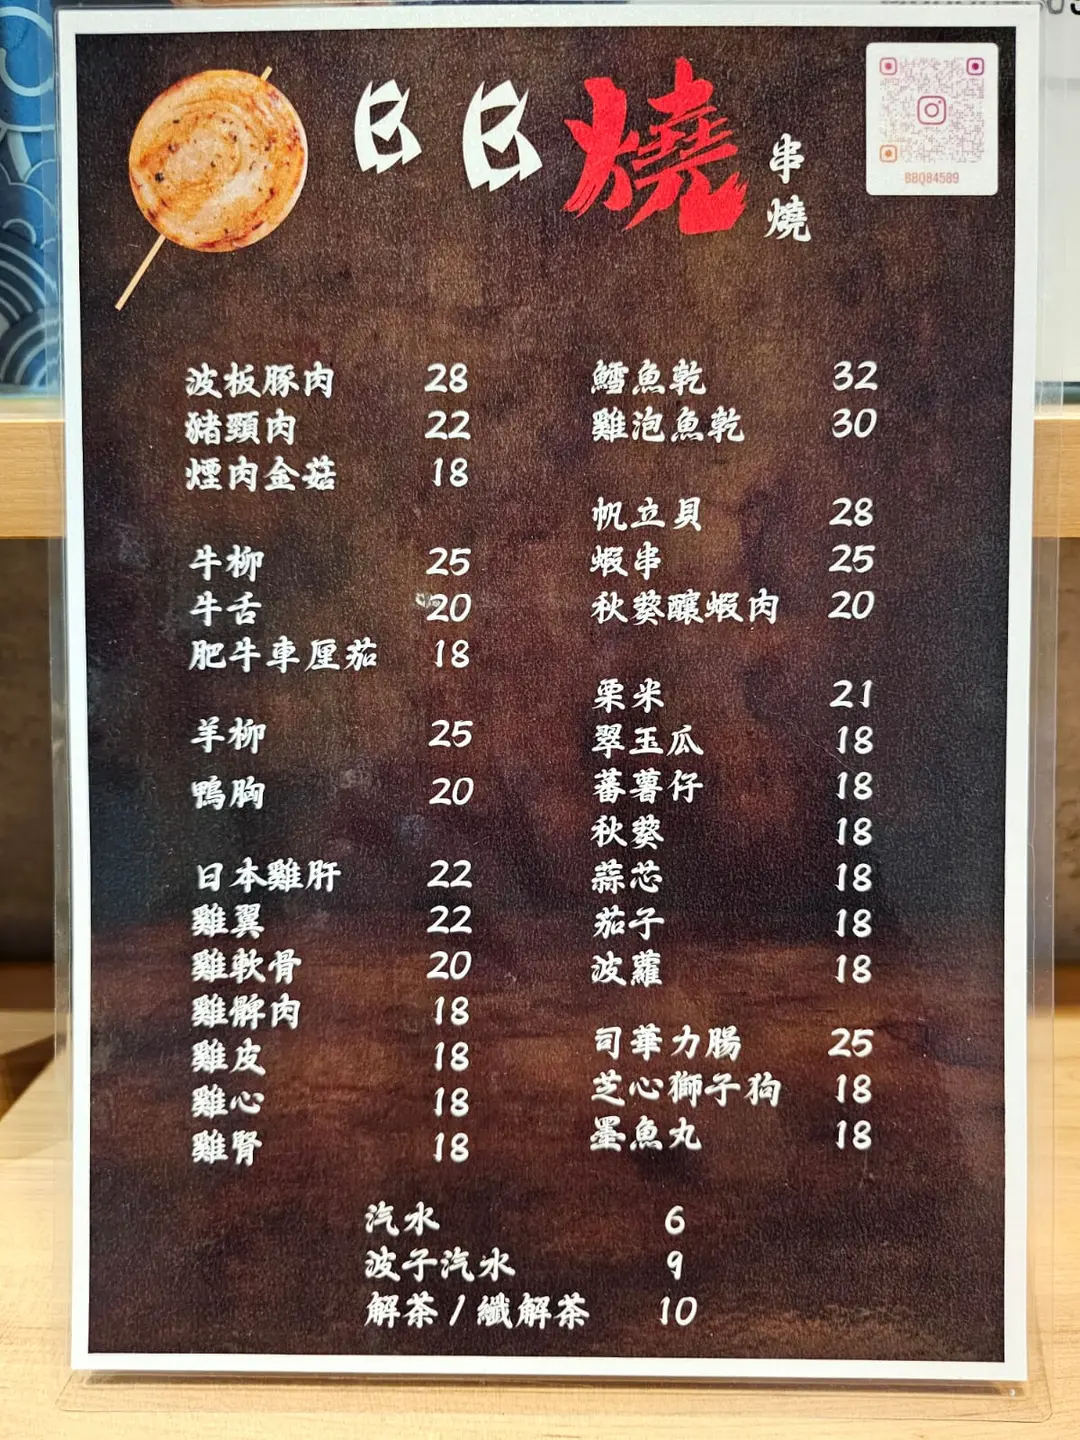 BB燒 串燒
BBQ84589
波板豚肉 28
豬頸肉 22
煙肉金菇 18
牛柳 25
牛舌 20
肥牛車厘茄 18
羊柳 25
鴨胸 20
日本雞肝 22
雞翼 22
雞軟骨 20
雞髀肉 18
雞皮 18
雞心 18
雞腎 18
鱈魚乾 32
雞泡魚乾 30
帆立貝 28
蝦串 25
秋葵釀蝦肉 20
栗米 21
翠玉瓜 18
蕃薯仔 18
秋葵 18
蒜芯 18
茄子 18
波蘿 18
司華力腸 25
芝心獅子狗 18
墨魚丸 18
汽水 6
波子汽水 9
解茶 / 纖解茶 10